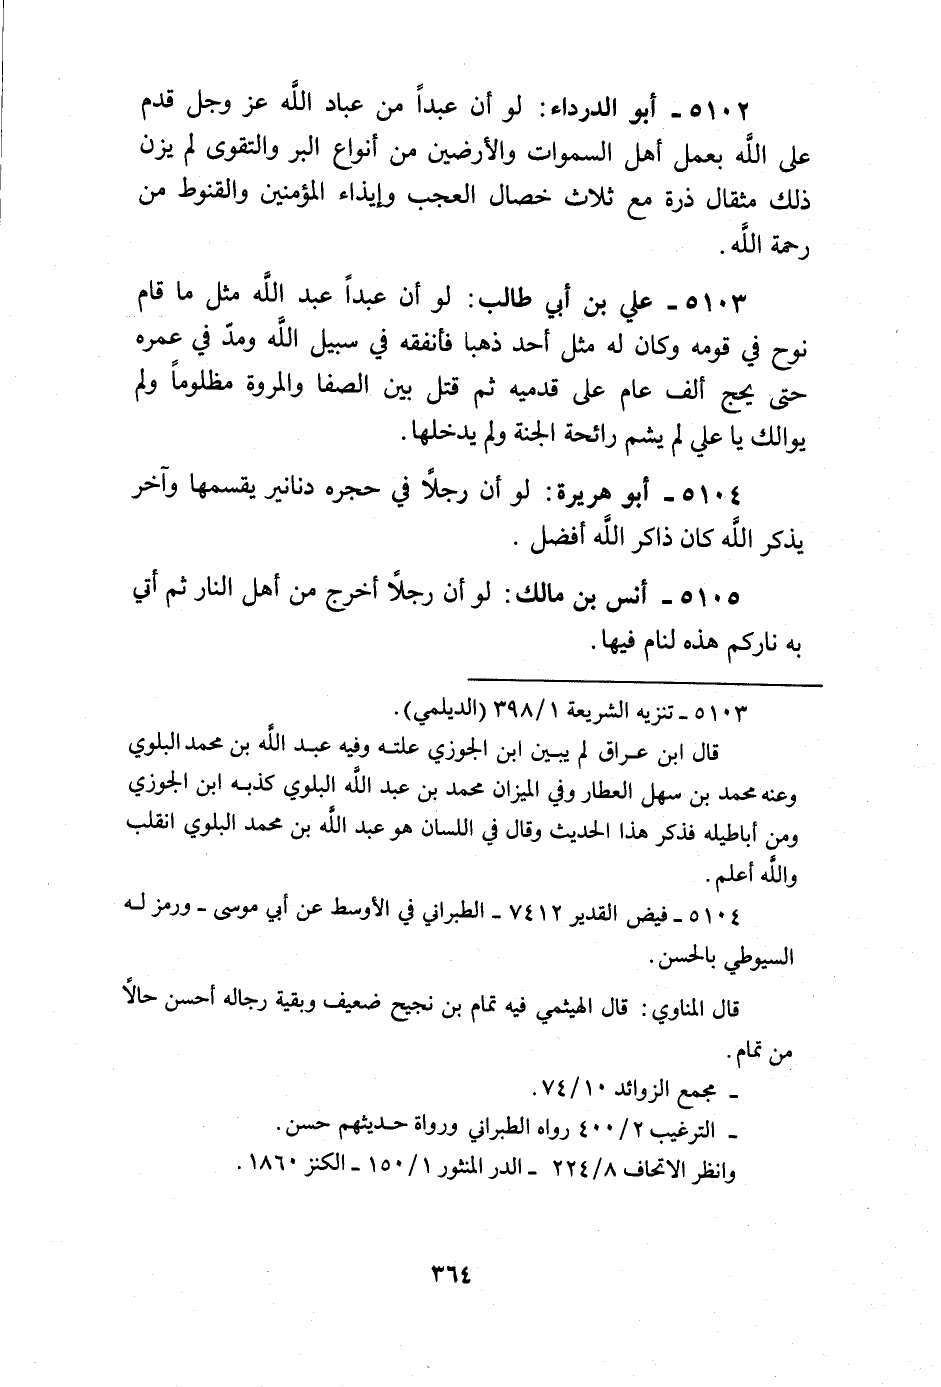 ٥١٠٢ ـ أبو الدرداء: لو أن عبداً من عباد اللَّه عز وجل قدم
على اللَّه بعمل أهل السموات والأرضين من أنواع البر والتقوى لم يزن
ذلك مثقال ذرة مع ثلاث خصال العجب وإيذاء المؤمنين والقنوط من
رحمة اللَّه.
٥١٠٣ ـ علي بن أبي طالب: لو أن عبداً عبد اللَّه مثل ما قام
نوح في قومه وكان له مثل أحد ذهبا فأنفقه في سبيل اللَّه ومدّ في عمره
حتى يحج ألف عام على قدميه ثم قتل بين الصفا والمروة مظلوماً ولم
يوالك يا علي لم يشم رائحة الجنة ولم يدخلها.
٥١٠٤ ـ أبو هريرة: لو أن رجلاً في حجره دنانير يقسمها وآخر
يذكر اللَّه كان ذاكر اللَّه أفضل .
٥١٠٥ ـ أنس بن مالك: لو أن رجلاً أخرج من أهل النار ثم أتي
به ناركم هذه لنام فيها.
٥١٠٣ ـ تنزيه الشريعة ٣٩٨/١ (الديلمي).
قال ابن عراق لم يبين ابن الجوزي علته وفيه عبد اللَّه بن محمد البلوي
وعنه محمد بن سهل العطار وفي الميزان محمد بن عبد اللَّه البلوي كذبه ابن الجوزي
ومن أباطيله فذكر هذا الحديث وقال في اللسان هو عبد اللَّه بن محمد البلوي انقلب
واللَّه أعلم.
٥١٠٤ ـ فيض القدير ٧٤١٢ ـ الطبراني في الأوسط عن أبي موسى ـ ورمز له
السيوطي بالحسن.
قال المناوي: قال الهيثمي فيه تمام بن نجيح ضعيف وبقية رجاله أحسن حالاً
من تمام.
ـ مجمع الزوائد ٧٤/١٠.
ـ الترغيب ٤٠٠/٢ رواه الطبراني ورواة حديثهم حسن.
وانظر الاتحاف ٢٢٤/٨ ـ الدر المنثور ١٥٠/١ ـ الكنز ١٨٦٠.
٣٦٤